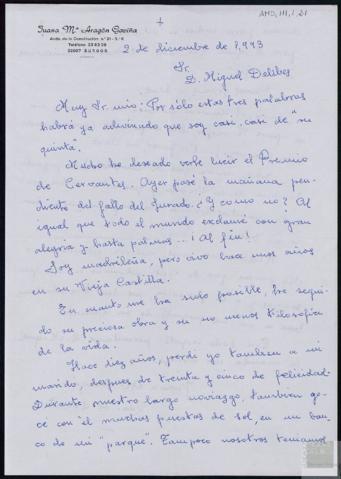 AMD, III, 1, 21
Juana Mª Aragón Gaviña
Avda. de la Constitución n.º 21 - 5.º
Teléfono
BURGOS
2 de diciembre de 1.993
Sr.
D. Miguel Delibes
Muy Sr. mío: Por sólo estas tres palabras
habrá ya adivinado que soy casi, casi de su
quinta.
Mucho he deseado verle lucir el Premio
de Cervantes. Ayer pasé la mañana pen-
diente del fallo del Jurado. ¿Y como no? Al
igual que todo el mundo exclamé con gran
alegría y hasta palmas...! Al fín!
Soy madrileña, pero vivo hace unos años
en su Vieja Castilla.
En cuanto me ha sido posible, he segui-
do su preciosa obra y su no menos filosofía
de la vida.
Hace diez años, perdí yo tambien a mi
marido, despues de treinta y cinco de felicidad.
Durante nuestro largo noviazgo, tambien go-
cé con él muchas puestas de sol, en un ban-
co de mi "parque". Tampoco nosotros teniamos